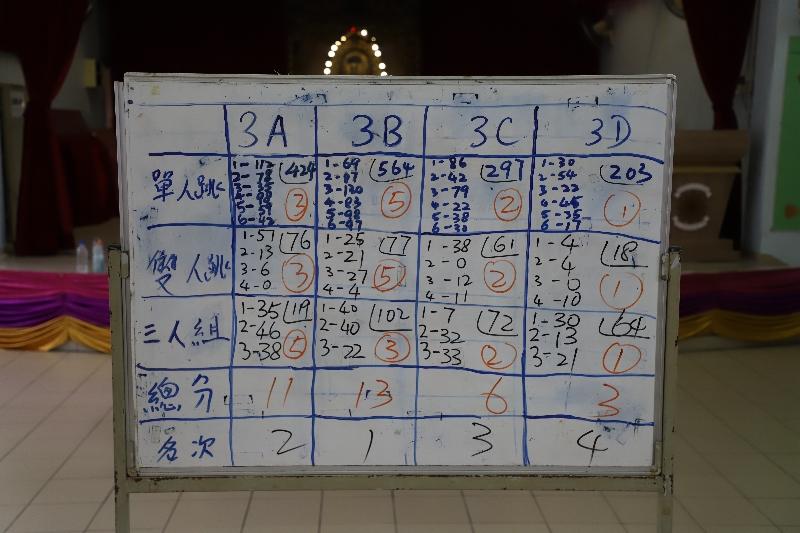 3A 3B 3C 3D
單人跳
1-112 424
2-78
③
1-69 564
3-130
⑤
1-86 297
2-42
3-79
4-22
5-38
6-30
②
1-30 203
2-54
3-22
6-17
①
雙人跳
1-57 76
2-13
3-6
4-0
③
1-25 77
2-21
3-27
4-4
⑤
1-38 61
2-0
3-12
4-11
②
1-4 18
2-4
3-0
4-10
①
三人組
1-35 119
2-46
3-38
⑤
1-40 102
2-40
3-22
③
1-7 72
2-32
3-33
②
1-30 64
2-13
3-21
①
總分 11 13 6 3
名次 2 1 3 4